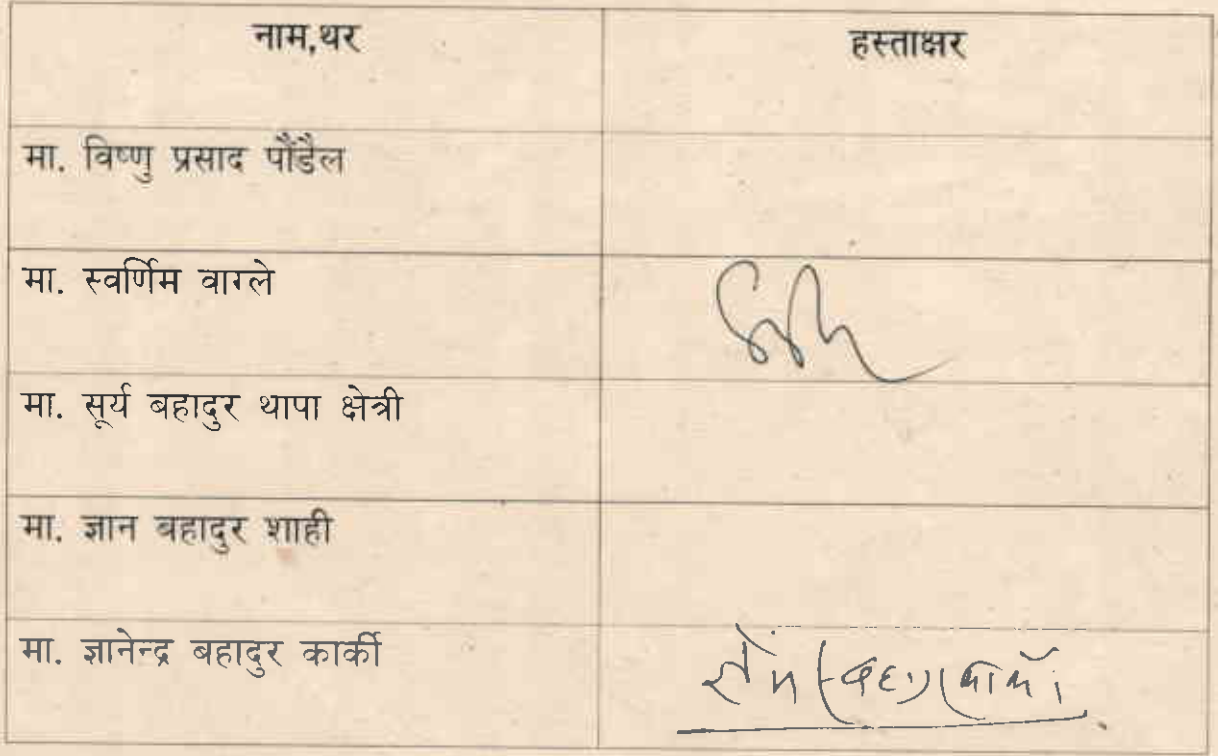 नाम,थर हस्ताक्षर
मा. विष्णु प्रसाद पौंडैल
मा. स्वर्णिम वाग्ले
मा. सूर्य बहादुर थापा क्षेत्री
मा. ज्ञान बहादुर शाही
मा. ज्ञानेन्द्र बहादुर कार्की